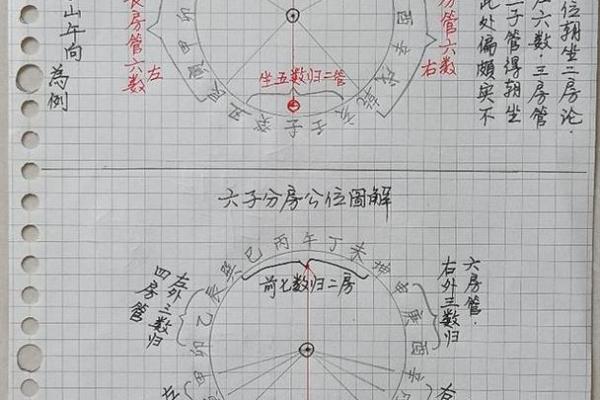 山午向
為例
長房管六數
左
甲
卯
艮
丑
癸
子
壬
亥
乾
坐五数归二管
酉
辛
戌
房管六数
右
位朝坐二房論.
六数.三房管
二子管得朝坐
此处偏頗实不
六子分房公位圖解
巳
丙
午
丁
未
坤
申
庚
酉
辛
辰
乙
卯
甲
前七数归二房
左外三数归
四房管
六房管.
右外三数归
左
右